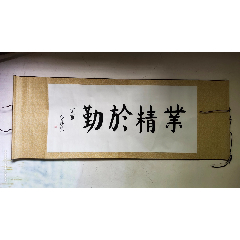 業精於勤